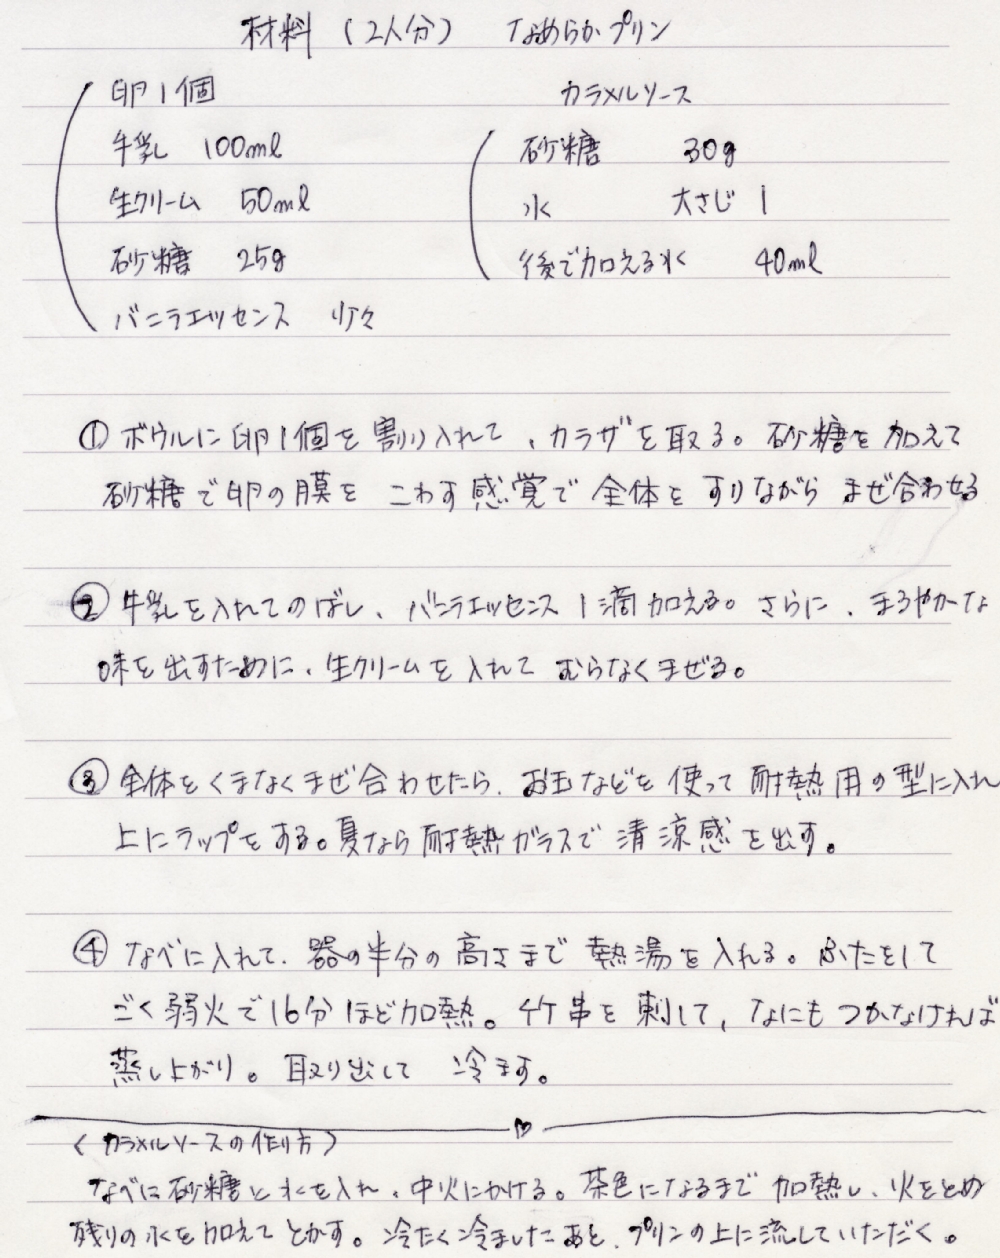 材料（2人分）　なめらかプリン
卵1個　カラメルソース
牛乳　100ml　砂糖　30g
生クリーム　50ml　水　大さじ 1
砂糖　25g　後で加える水　40ml
バニラエッセンス　少々
① ボウルに卵1個を割り入れて、カラザを取る。砂糖を加えて
砂糖で卵の膜を こわす感覚で 全体を すりながら まぜ合わせる
② 牛乳を入れてのばし、バニラエッセンス 1滴加える。さらに、まろやかな
味を出すために、生クリームを入れて むらなくまぜる。
③ 全体をくまなくまぜ合わせたら、お玉などを使って耐熱用の型に入れ
上にラップをする。夏なら耐熱ガラスで清涼感を出す。
④ なべに入れて、器の半分の高さまで熱湯を入れる。ふたをして
ごく弱火で16分ほど加熱。竹串を刺して、なにもつかなければ
蒸し上がり。取り出して 冷ます。
〈カラメルソースの作り方〉
なべに砂糖と水を入れ、中火にかける。茶色になるまで加熱し、火をとめ
残りの水を加えてとかす。冷たく冷ましたあと、プリンの上に流していただく。